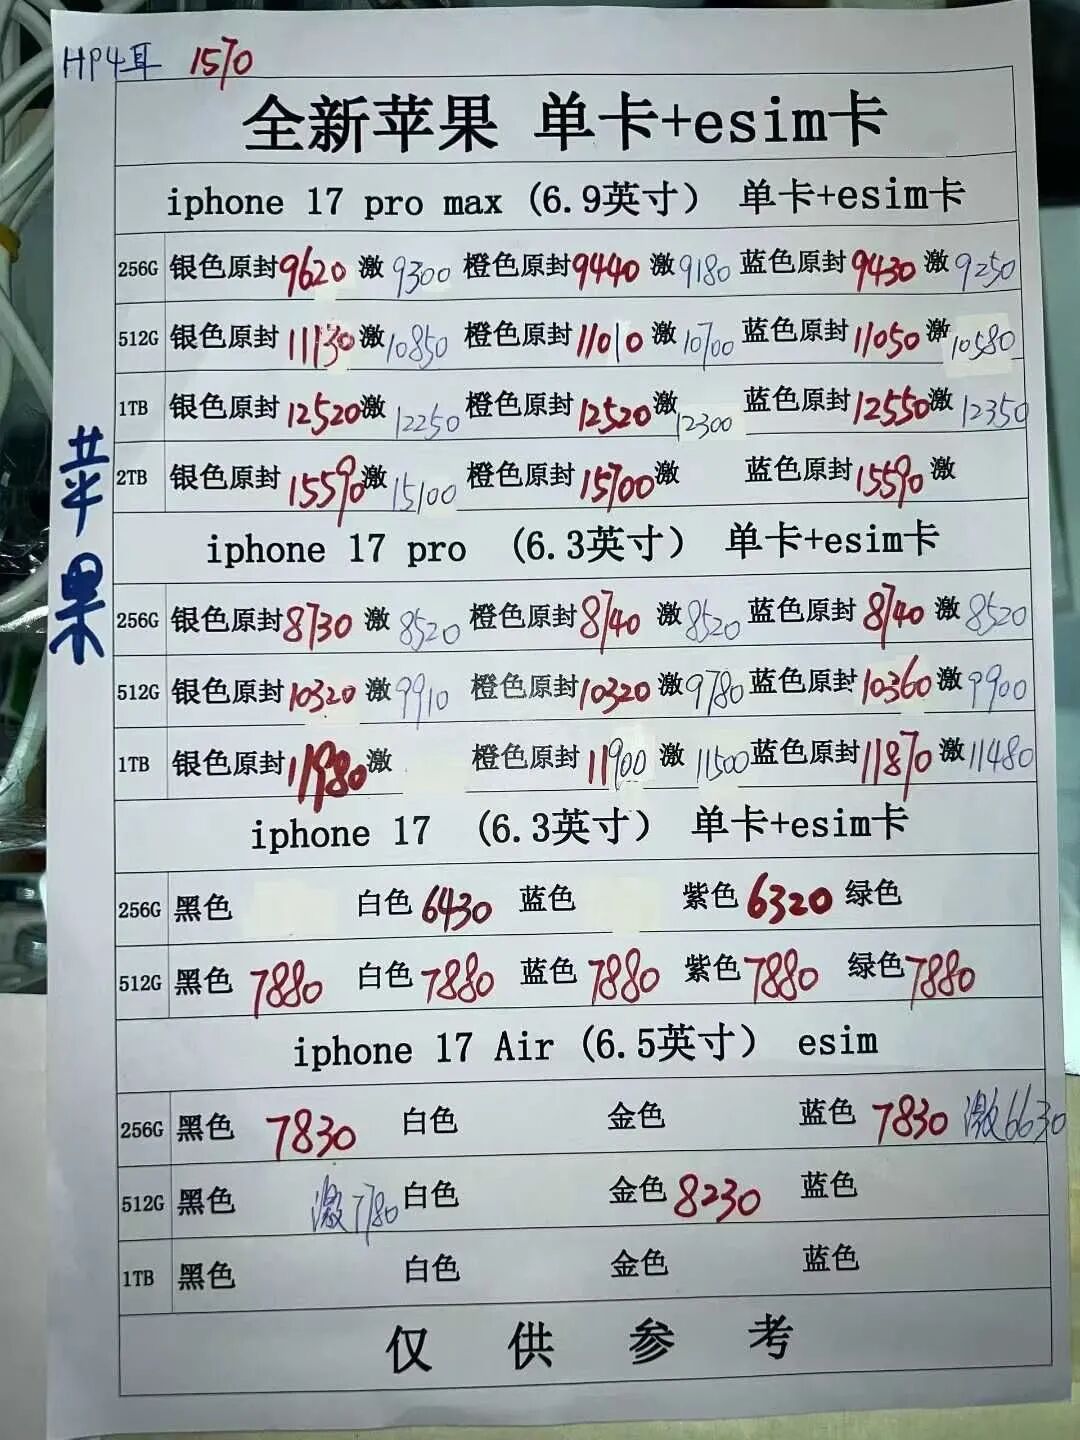 HP4耳 1570
全新苹果 单卡+esim卡
iphone 17 pro max (6.9英寸) 单卡+esim卡
256G 银色原封9620 激9300 橙色原封9440 激9180 蓝色原封9430 激9250
512G 银色原封11130 激10850 橙色原封11010 激10700 蓝色原封11050 激10580
1TB 银色原封12520 激12250 橙色原封12520 激12300 蓝色原封12550 激12350
苹果
2TB 银色原封15590 激15100 橙色原封15700 激 蓝色原封15590 激
iphone 17 pro (6.3英寸) 单卡+esim卡
256G 银色原封8730 激8520 橙色原封8740 激8520 蓝色原封8740 激8520
512G 银色原封10320 激9910 橙色原封10320 激9780 蓝色原封10360 激9900
1TB 银色原封11980 激 橙色原封11900 激11500 蓝色原封11870 激11480
iphone 17 (6.3英寸) 单卡+esim卡
256G 黑色 白色6430 蓝色 紫色6320 绿色
512G 黑色7880 白色7880 蓝色7880 紫色7880 绿色7880
iphone 17 Air (6.5英寸) esim
256G 黑色7830 白色 金色 蓝色7830 激6630
512G 黑色 激7780 白色 金色8230 蓝色
1TB 黑色 白色 金色 蓝色
仅供参考